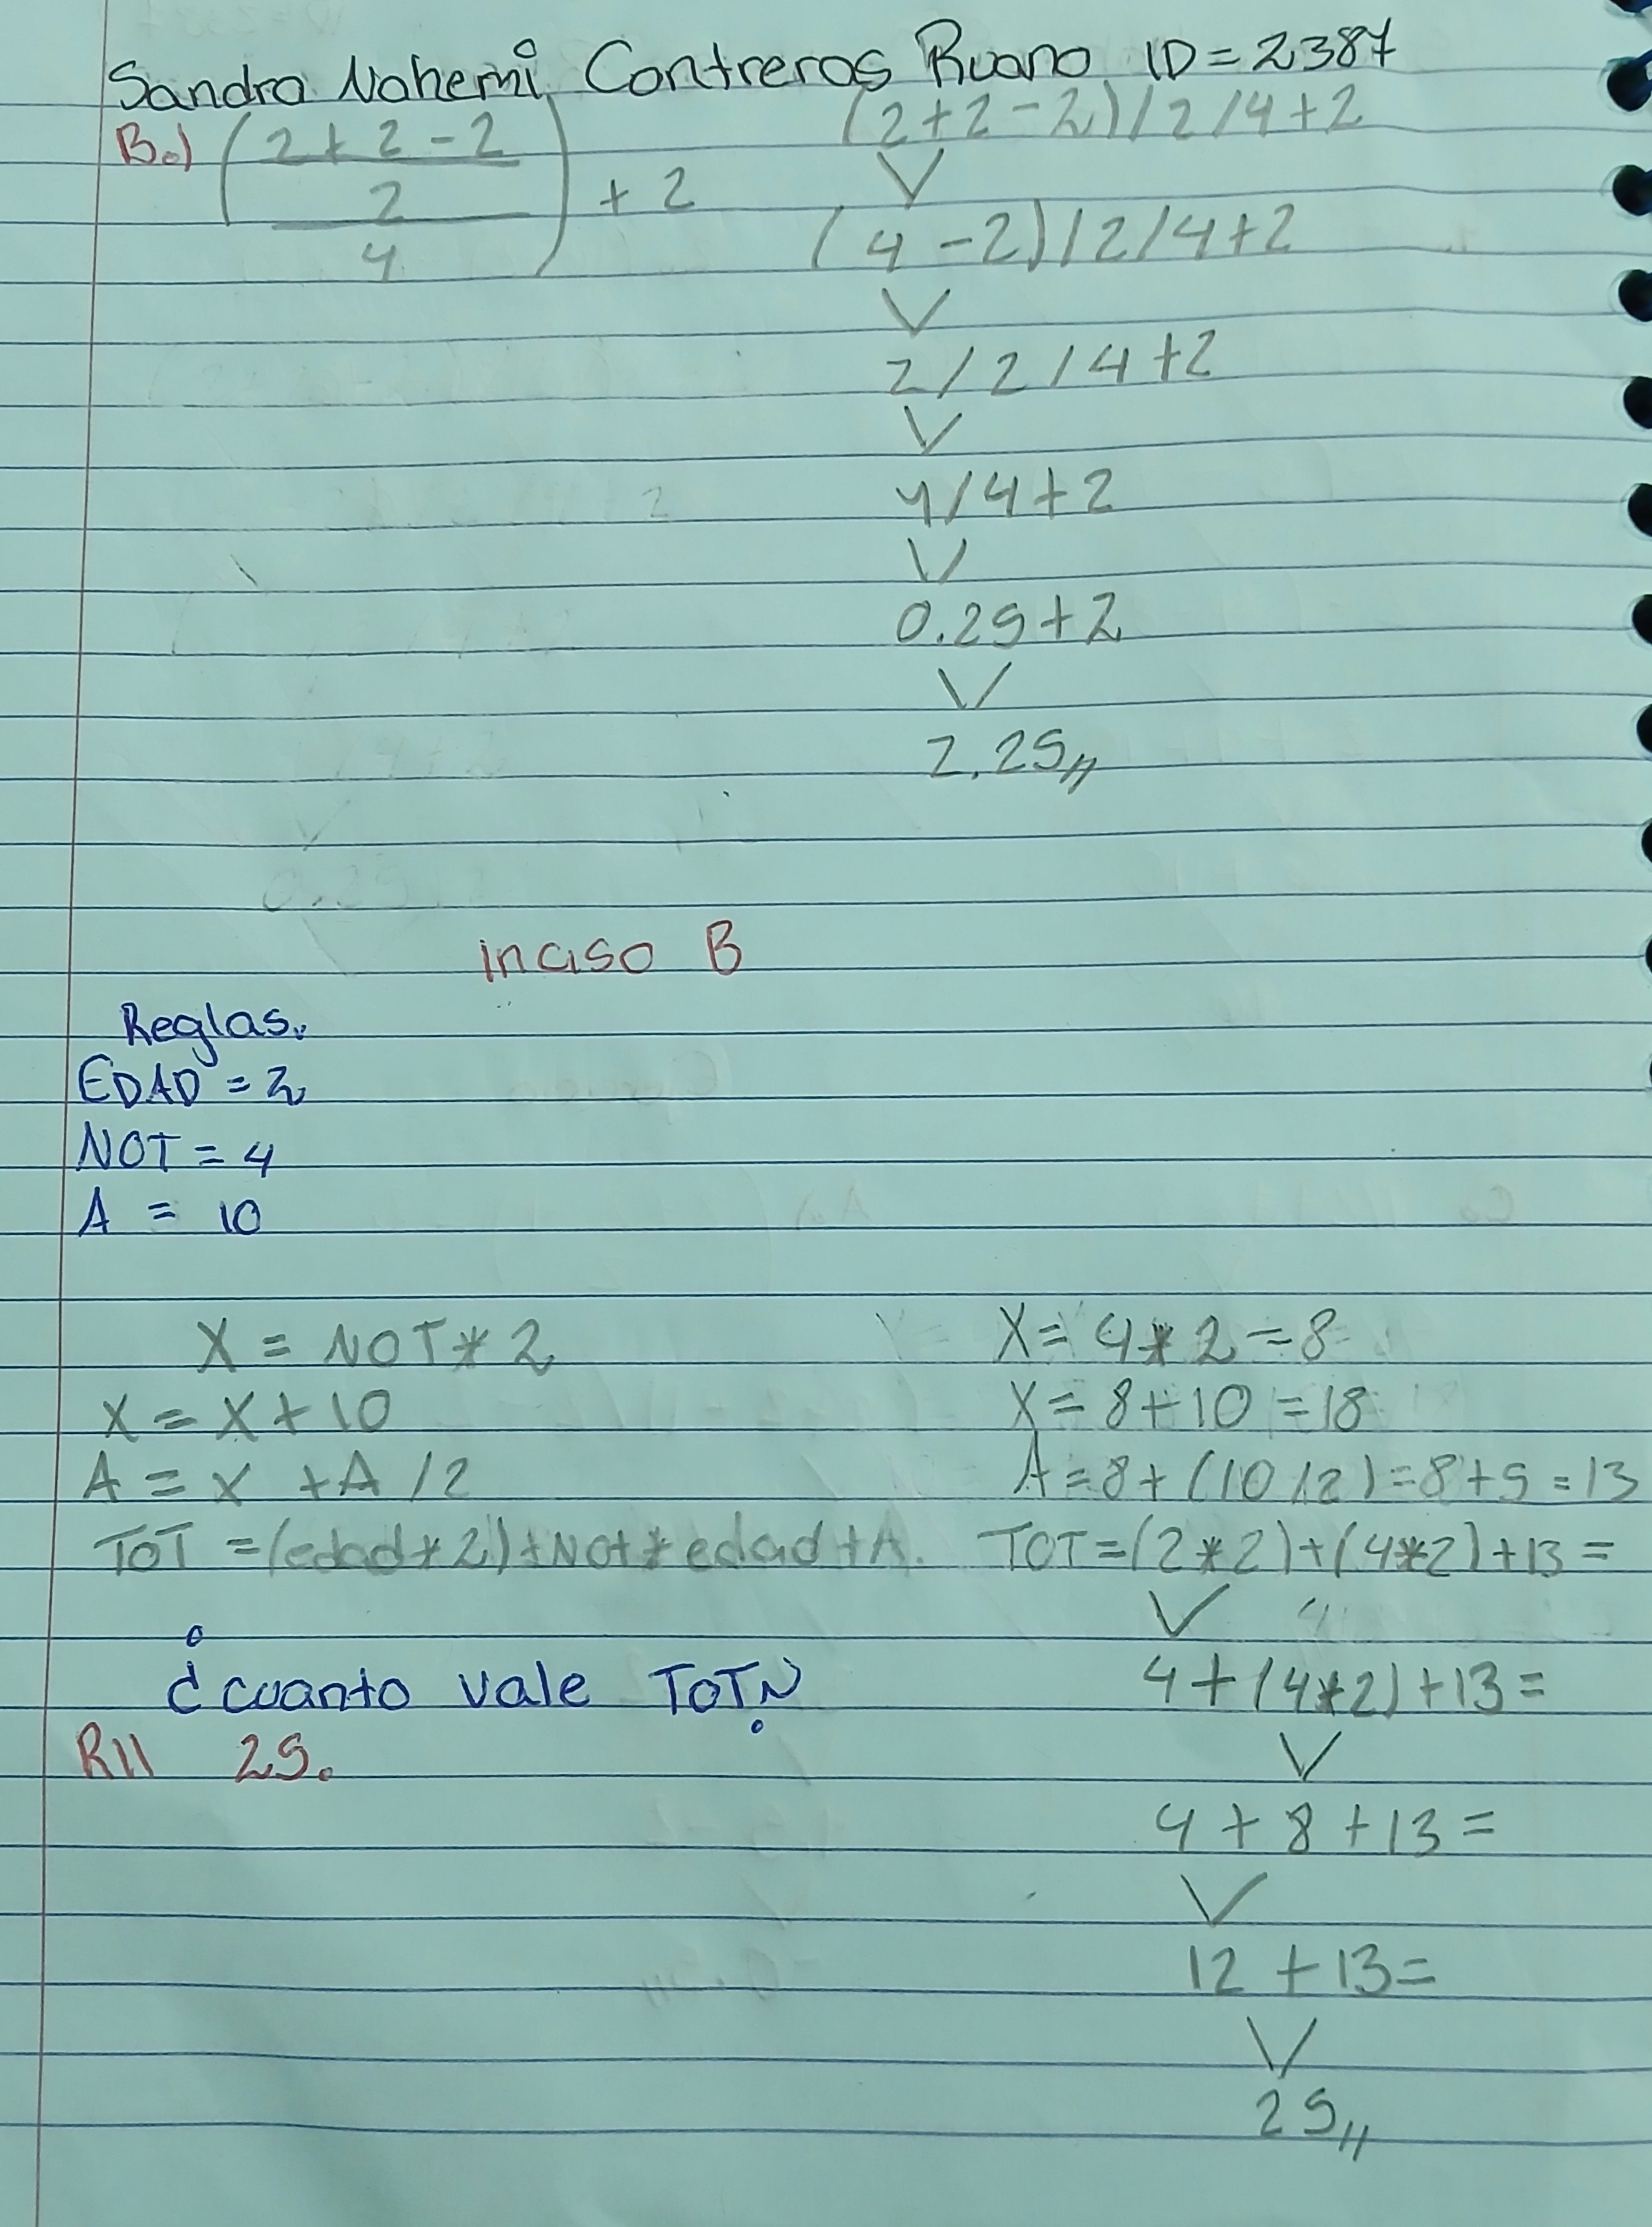 Sandra Nohemi Contreras Ruano ID = 2387
B.) ((2 + 2 - 2 / 2) / 4) + 2
(2+2-2)/2/4+2
(4-2)/2/4+2
2/2/4+2
1/4+2
0.25+2
2.25//
inciso B
Reglas.
EDAD = 2
NOT = 4
A = 10
X = NOT * 2
X = X + 10
A = X + A / 2
TOT = (edad * 2) + Not * edad + A.
X = 4 * 2 = 8
X = 8 + 10 = 18
A = 8 + (10/2) = 8 + 5 = 13
TOT = (2*2)+(4*2)+13 =
4+(4*2)+13=
4+8+13=
12+13=
25//
¿cuanto vale TOT?
R// 25.